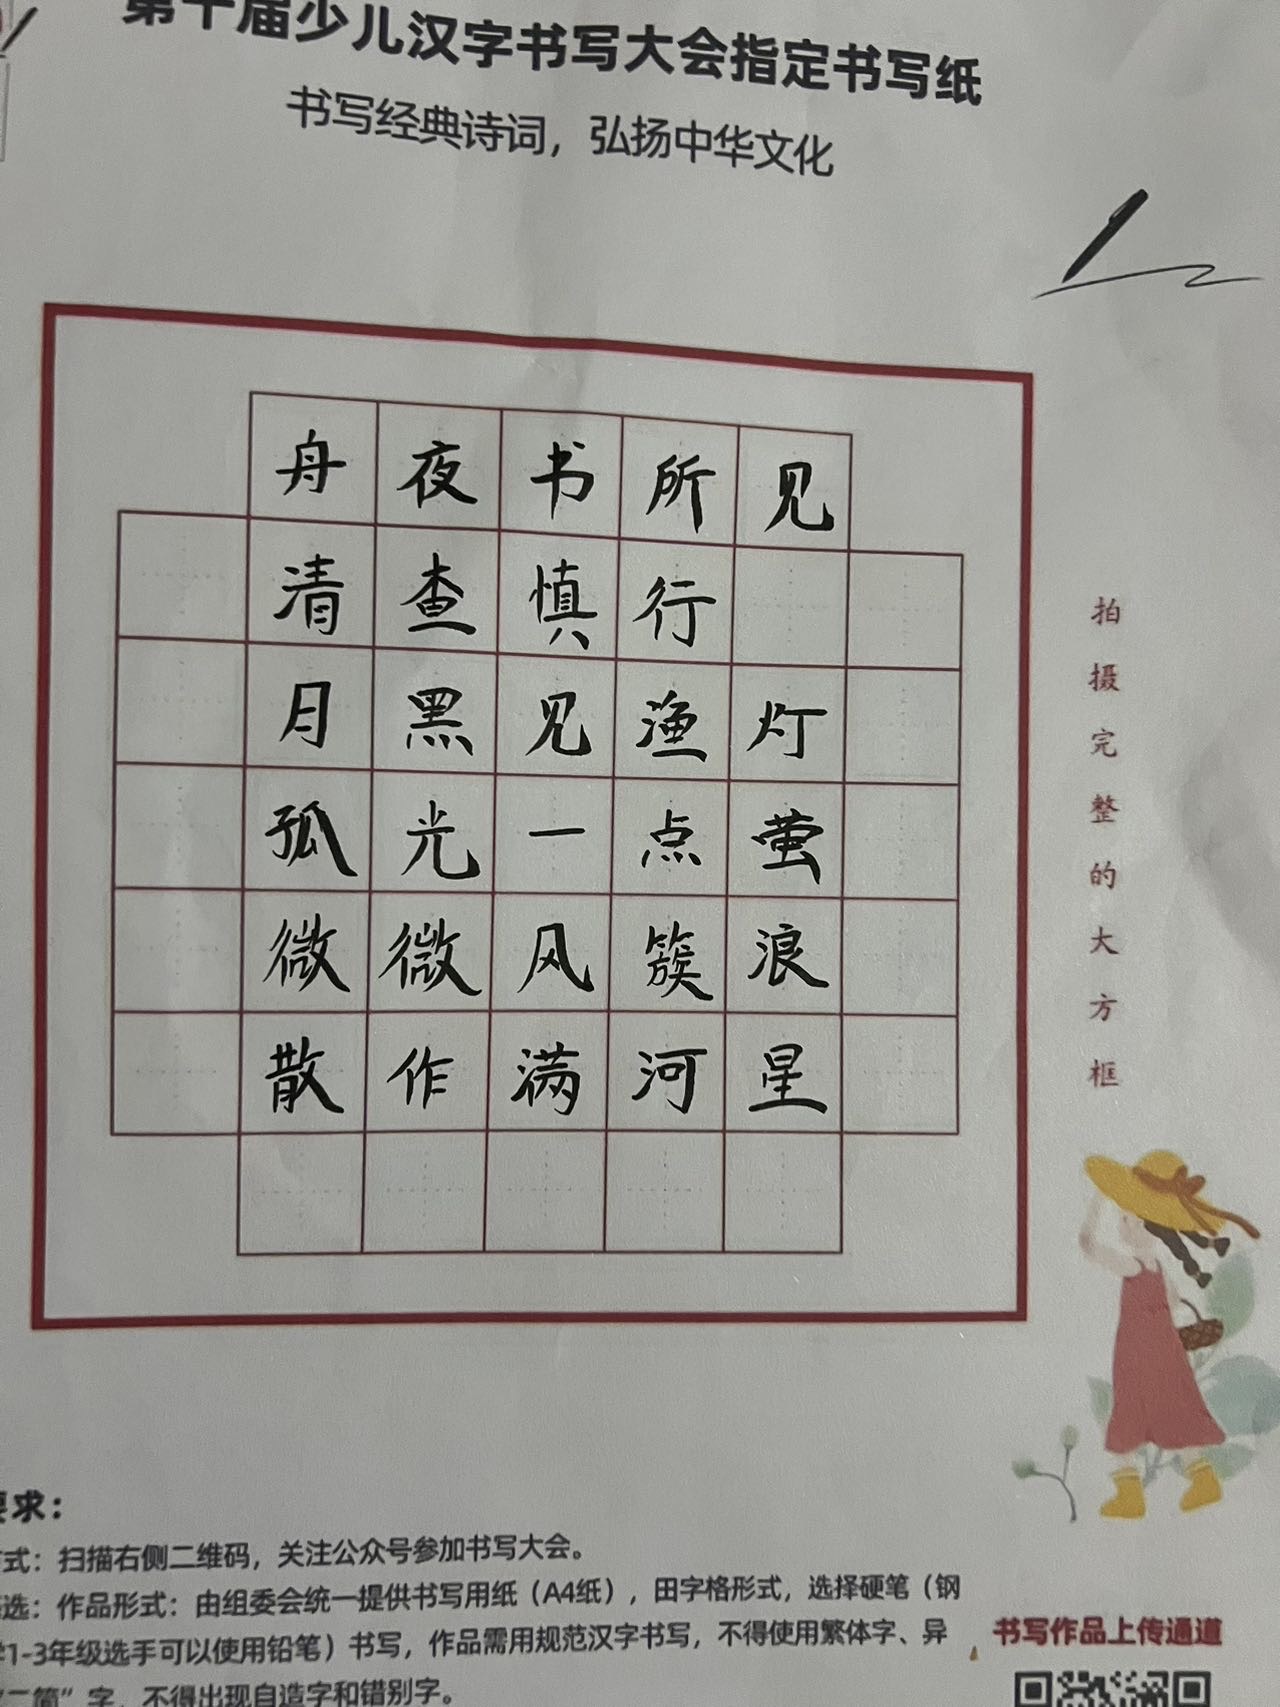 第十届少儿汉字书写大会指定书写纸
书写经典诗词，弘扬中华文化
舟夜书所见
清查慎行
月黑见渔灯
孤光一点萤
微微风簇浪
散作满河星
拍摄完整的大方框
要求：
式：扫描右侧二维码，关注公众号参加书写大会。
选：作品形式：由组委会统一提供书写用纸（A4纸），田字格形式，选择硬笔（钢
1-3年级选手可以使用铅笔）书写，作品需用规范汉字书写，不得使用繁体字、异
“二简”字，不得出现自造字和错别字。
书写作品上传通道